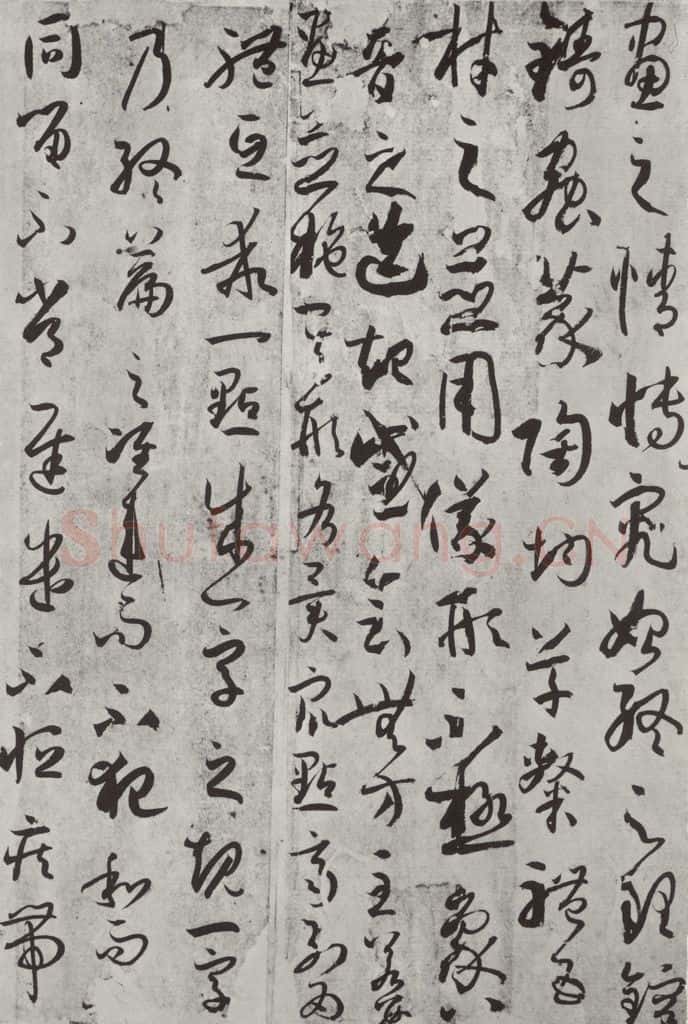 畫之情博究始終之理鎔
鑄蟲篆陶均草隸體五
材之並用儀形不極象八
音之迭起感會無方至若數
畫並施其形各異衆點齊列為
體互乖一點成一字之規一字
乃終篇之準違而不犯和而
同留不常遲遣不恒疾帶
Shufawang.CN